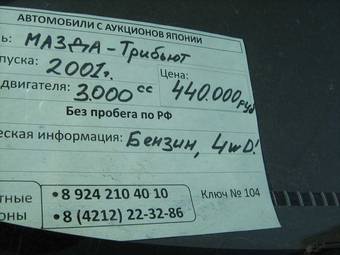 АВТОМОБИЛИ С АУКЦИОНОВ ЯПОНИИ
ь: МАЗДА - Трибьют
пуска: 2001г. Цена:
двигателя: 3.000 сс 440.000 руб
Без пробега по РФ
еская информация: Бензин, 4wD!
тные • 8 924 210 40 10 Ключ № 104
оны • 8 (4212) 22-32-86